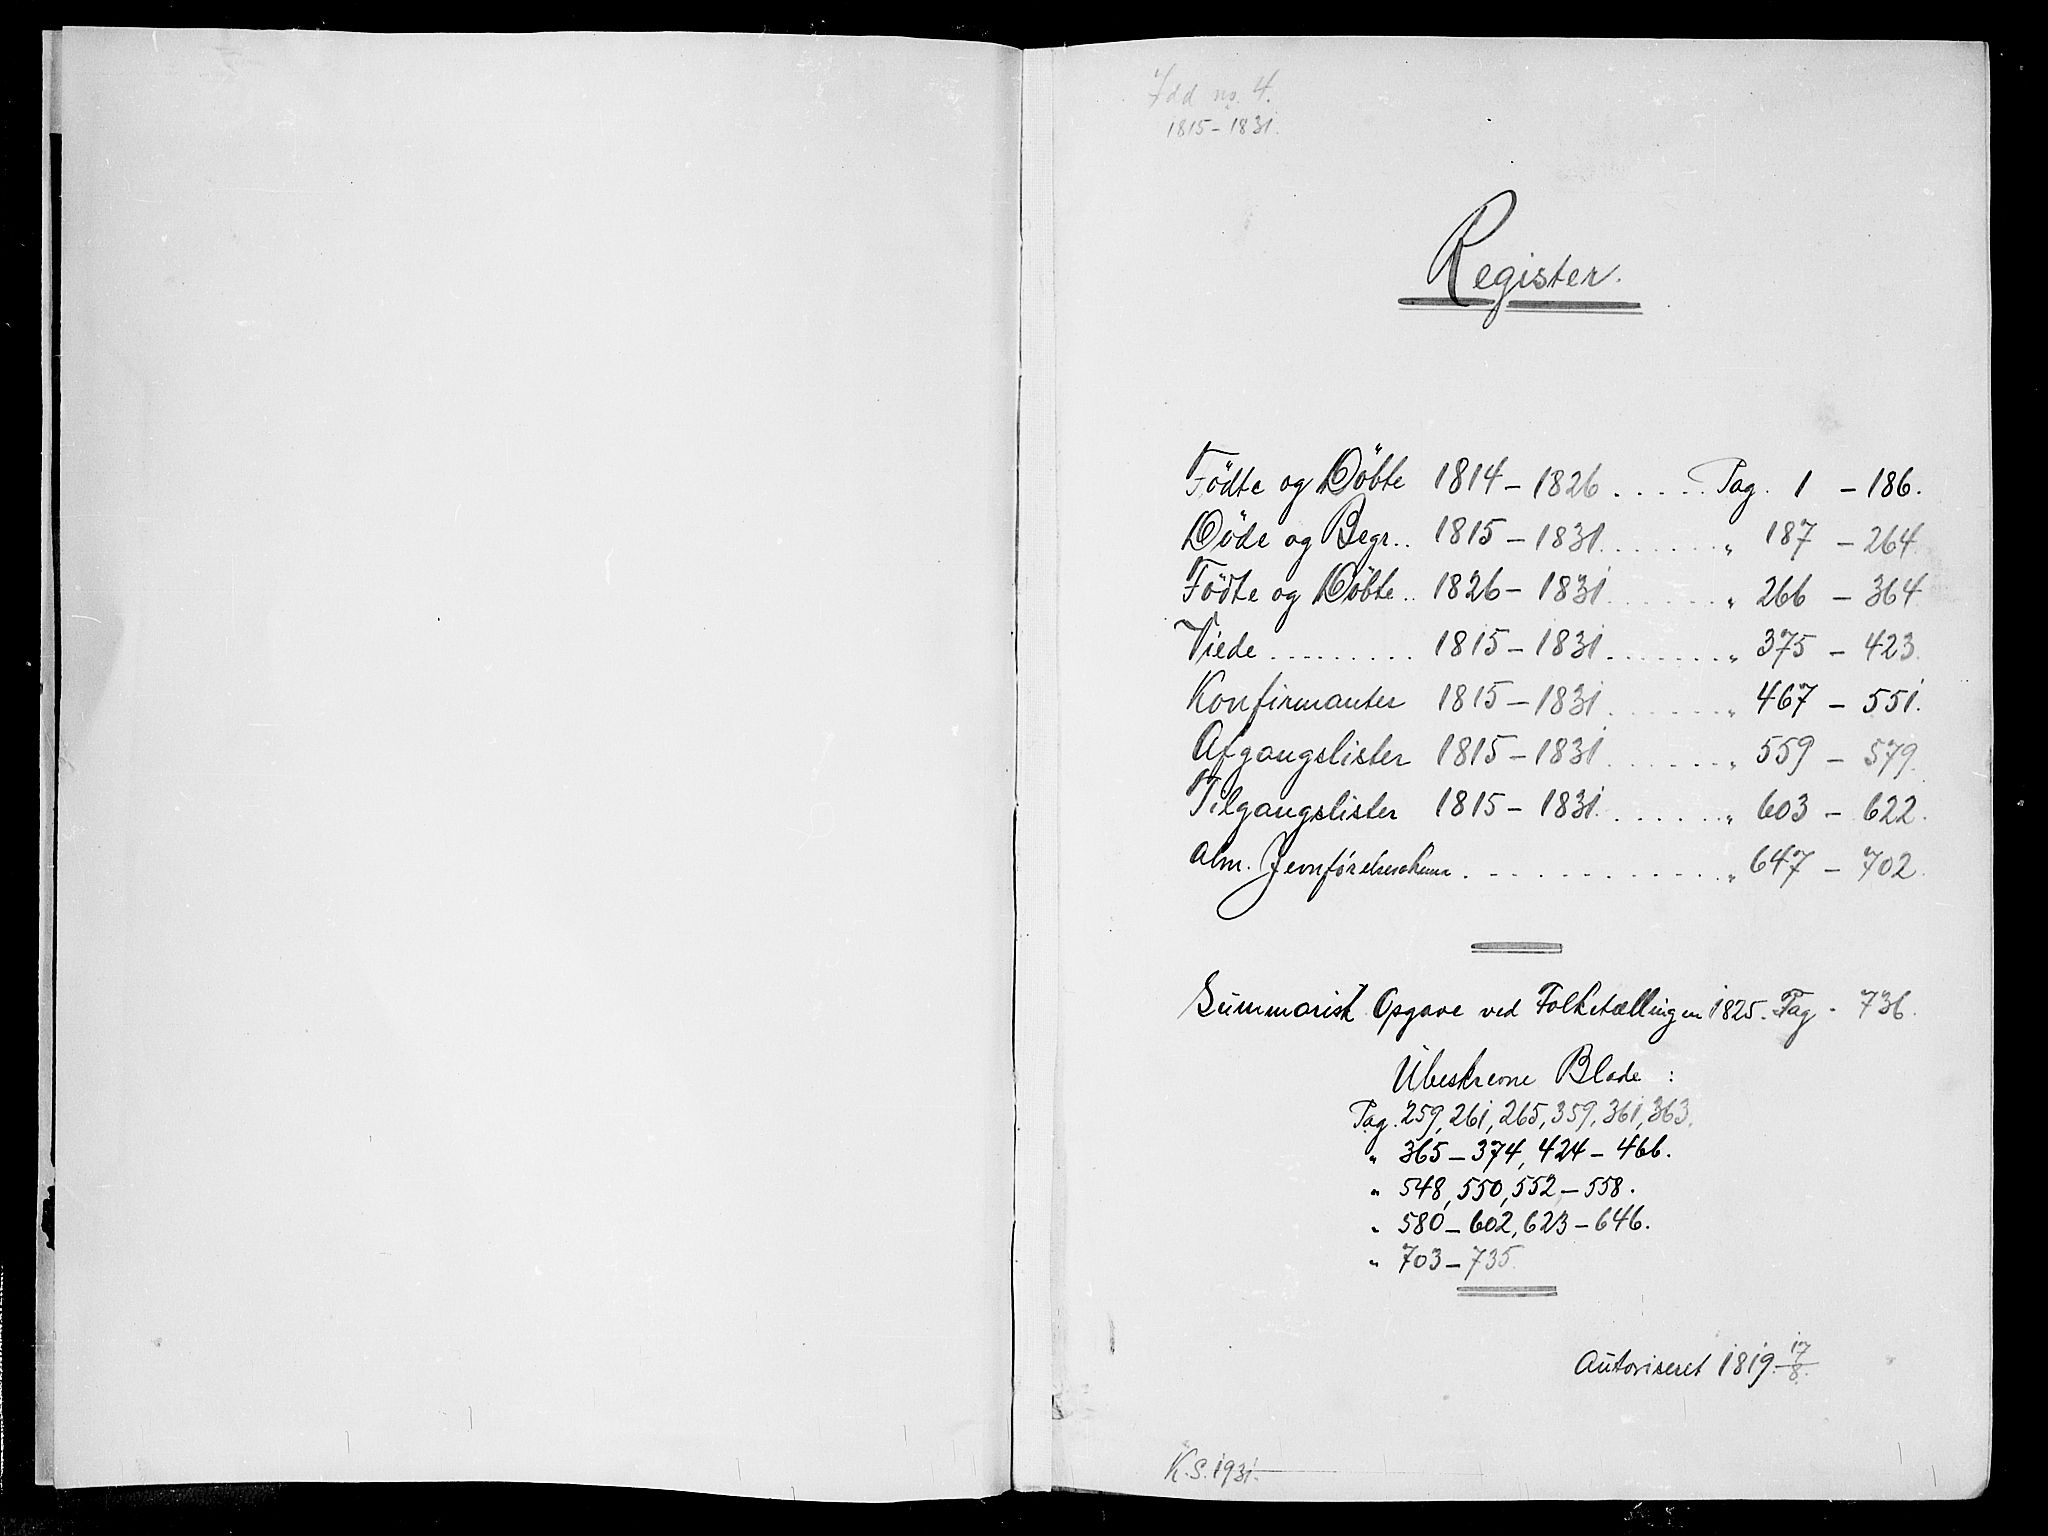 Idd no. 4.
1815 – 1831.
Register.
Födte og Döbte 1814 – 1826 ..... Pag. 1 – 186.
Döde og Begr.. 1815 – 1831 ....... " 187 – 264.
Födte og Döbte .. 1826 – 1831 ...... " 266 – 364
Viede ......... 1815 – 1831 ....... " 375 – 423.
Konfirmanter 1815 – 1831 ....... " 467 – 551.
Afgangslister 1815 – 1831 ...... " 559 – 579.
Tilgangslister 1815 – 1831. ...... " 603 – 622.
Alm. Jevnførelseschema ............. " 647 – 702.
Summarisk Opgave ved Folketællingen 1825. Pag. 736.
Ubeskrevne Blade :
Pag. 259, 261, 265, 359, 361, 363.
" 365 – 374, 424 – 466.
" 548, 550, 552 – 558.
" 580 – 602, 623 – 646.
" 703 – 735.
Autoriseret 1819 17/8.
K.S. 1931.